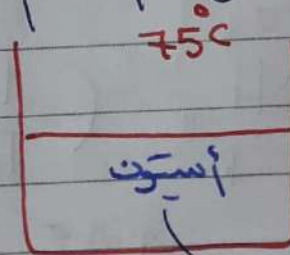 75°C
أستون